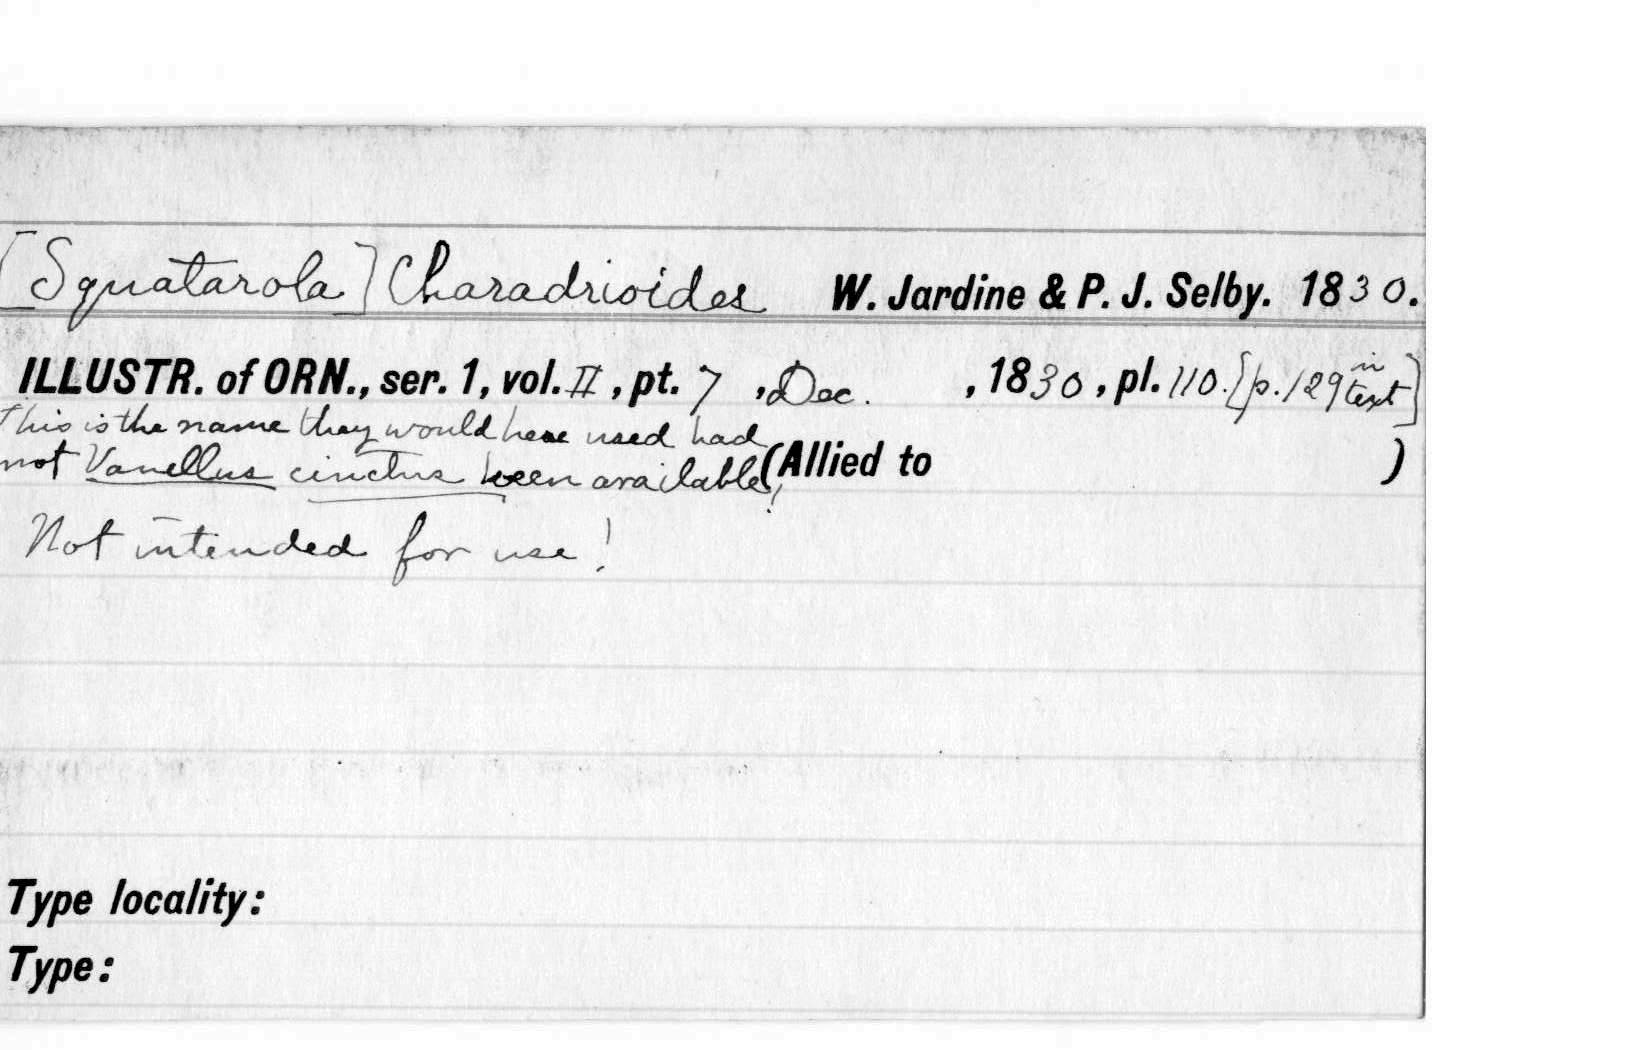 [Squatarola] Charadrioides W. Jardine & P. J. Selby. 1830.
ILLUSTR. of ORN., ser. 1, vol. II, pt. 7, Dec. , 1830, pl. 110. [p. 129 in text]
This is the name they would have used had
not Vanellus cinctus been available! (Allied to )
Not intended for use!
Type locality:
Type: